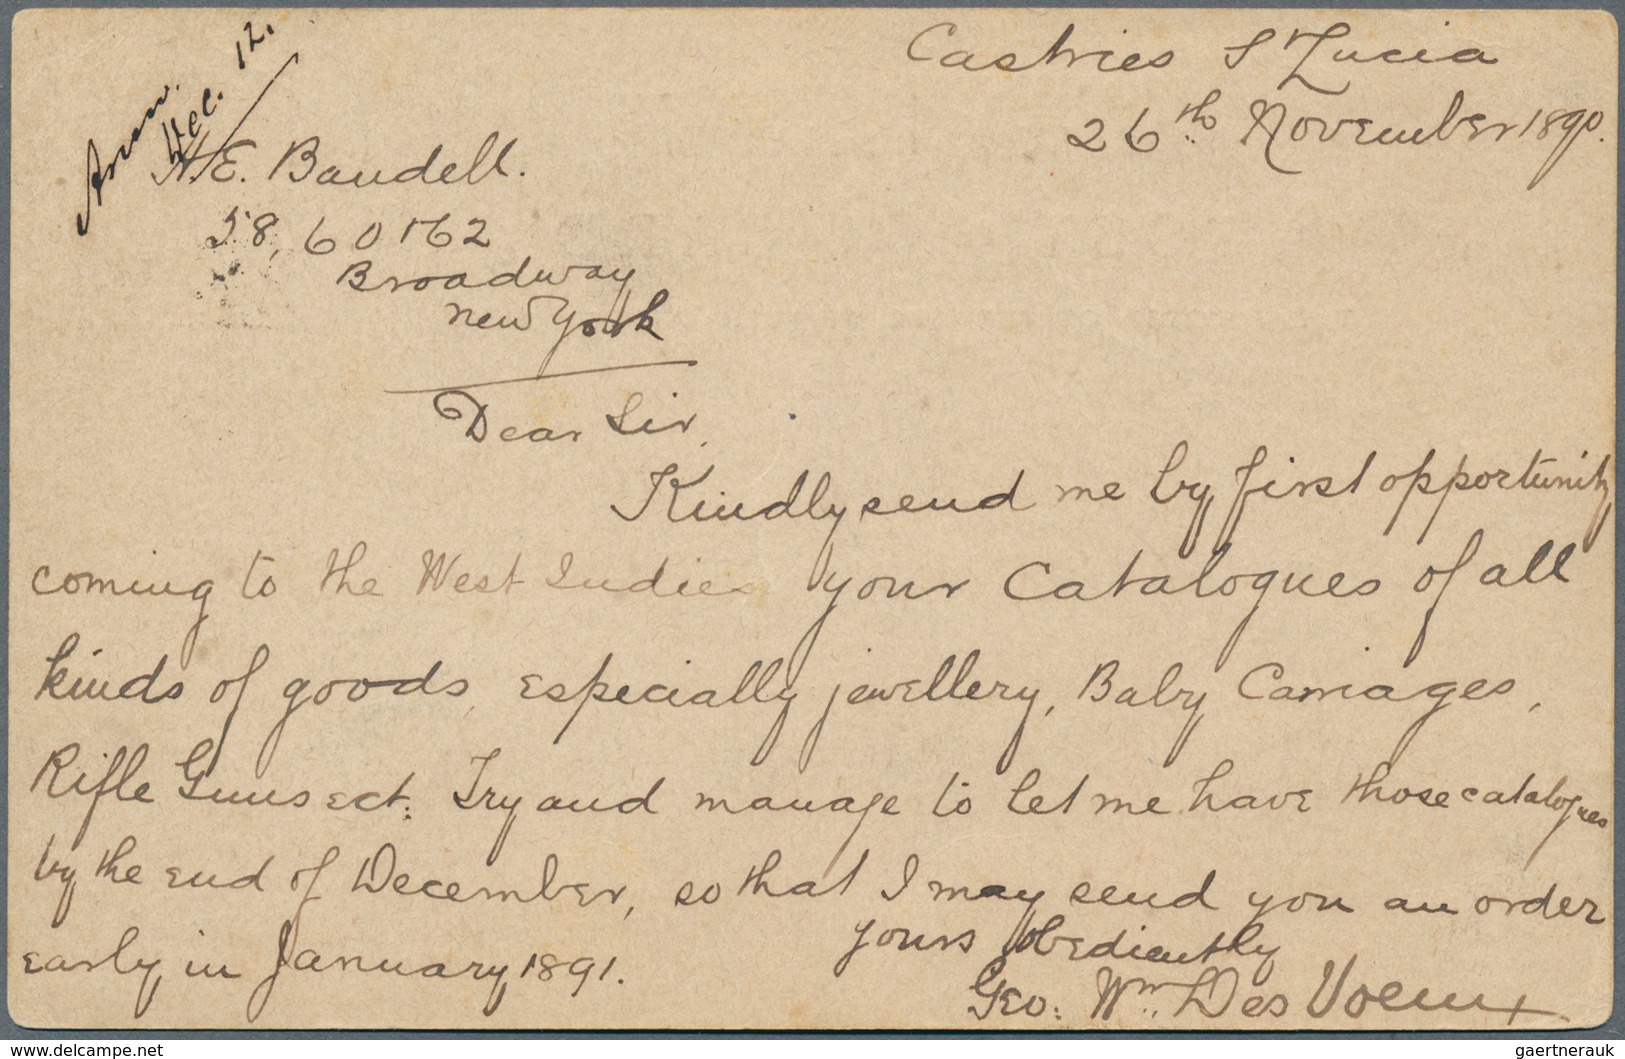 Castries St Lucia
26th November 1890.
Dec. 12.
H.E. Baudell.
58, 60 & 62
Broadway
New York
Dear Sir,
Kindly send me by first opportunity
coming to the West Indies your Catalogues of all
kinds of goods, especially jewellery, Baby Carriages,
Rifle Guns ect: Try and manage to let me have those catalogues
by the end of December, so that I may send you an order
early in January, 1891.
yours obediently
Geo: Wm. Des Voeux
delcampe.net
gaertnerauk